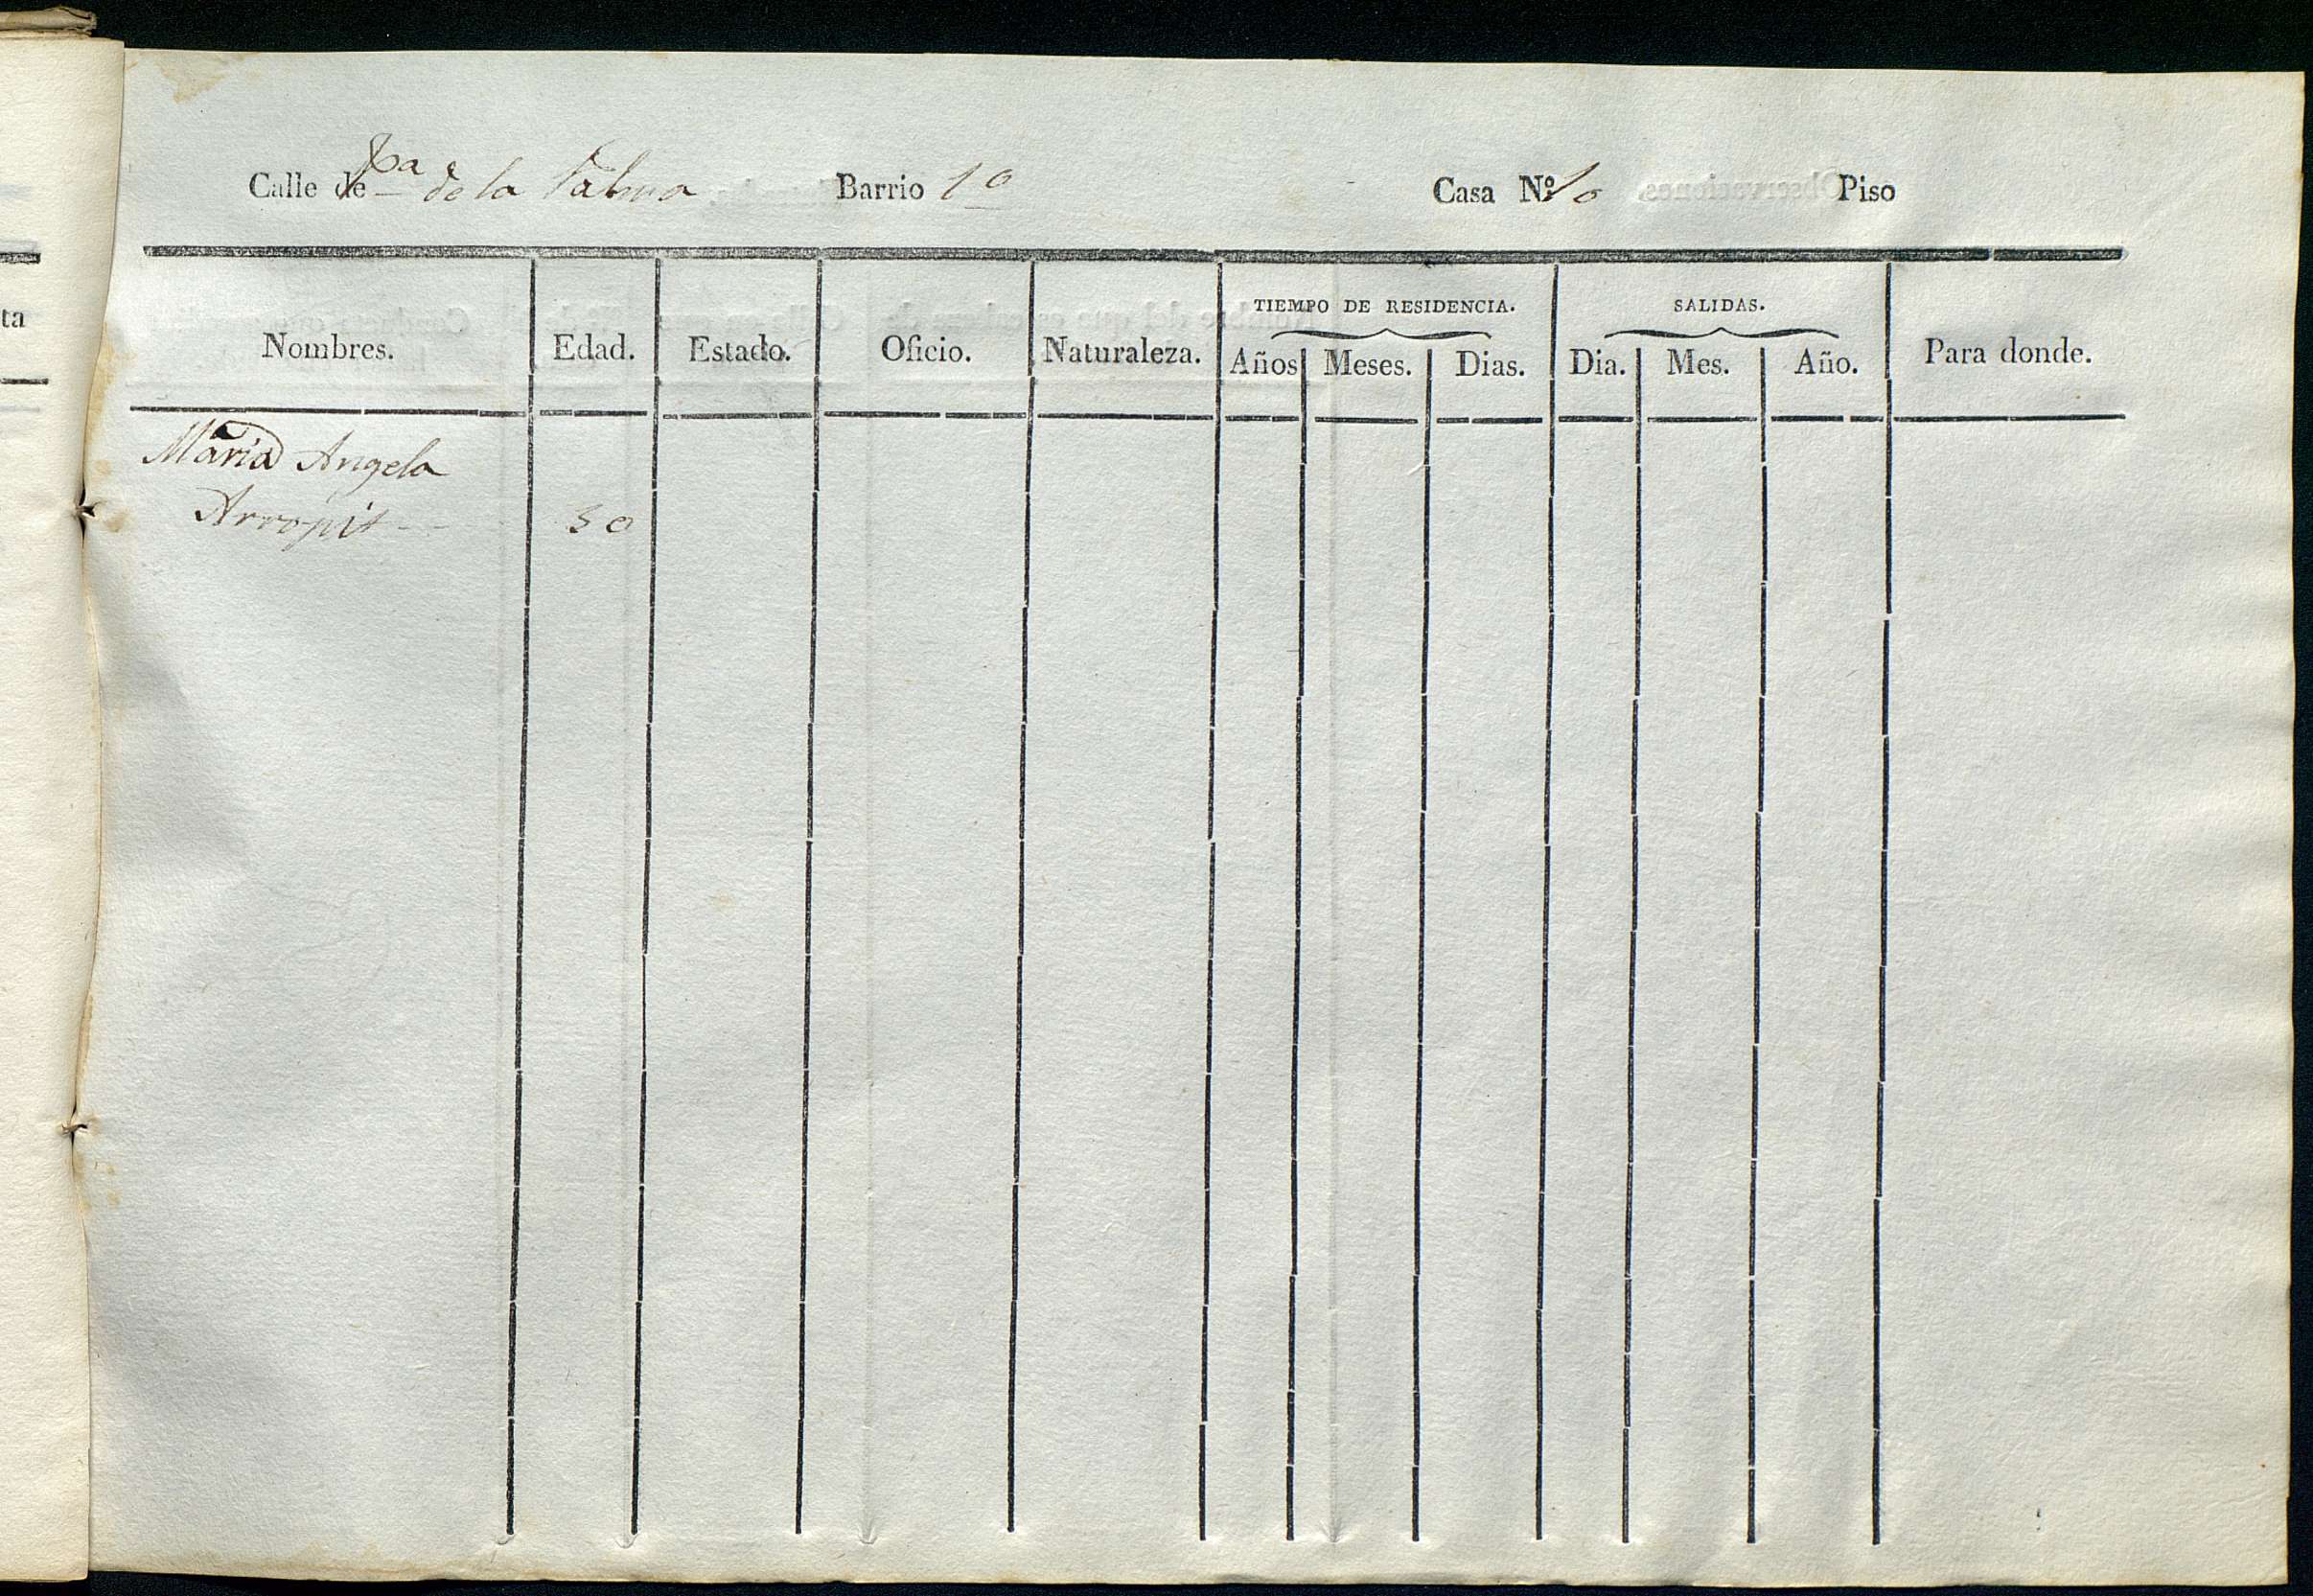 ta
Calle de Pza de la Palma Barrio 1o Casa No. 10 Piso
TIEMPO DE RESIDENCIA. SALIDAS.
Nombres. Edad. Estado. Oficio. Naturaleza. Años Meses. Dias. Dia. Mes. Año. Para donde.
Maria Angela
Arropit -- 30